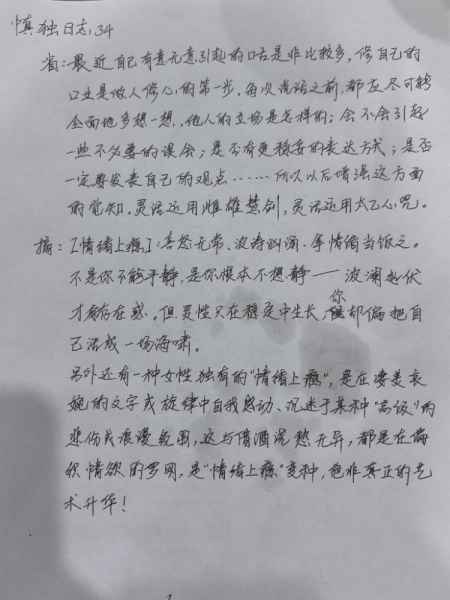 慎独日志34
省:最近自己有意无意引起的口舌是非比较多,修自己的
口业是做人修心的第一步,每次说话之前,都应尽可能
全面地多想一想,他人的立场是怎样的;会不会引起
一些不必要的误会;是否有更稳妥的表达方式;是否
一定要发表自己的观点……所以以后增强这方面
的觉知,灵活运用雌雄慧剑,灵活运用太乙心咒。
摘:[情绪上瘾]:喜怒无常、波涛汹涌,拿情绪当饭吃。
不是你不能平静,是你根本不想静——波澜起伏
才有存在感。但灵性只在稳定中生长,你却偏把自
己活成一场海啸。
另外还有一种女性独有的"情绪上瘾",是在凄美哀
婉的文字或旋律中自我感动、沉迷于某种"高级"的
悲伤或浪漫氛围,这与借酒浇愁无异,都是在编
织情欲的罗网,是"情绪上瘾"变种,绝非真正的艺
术升华!